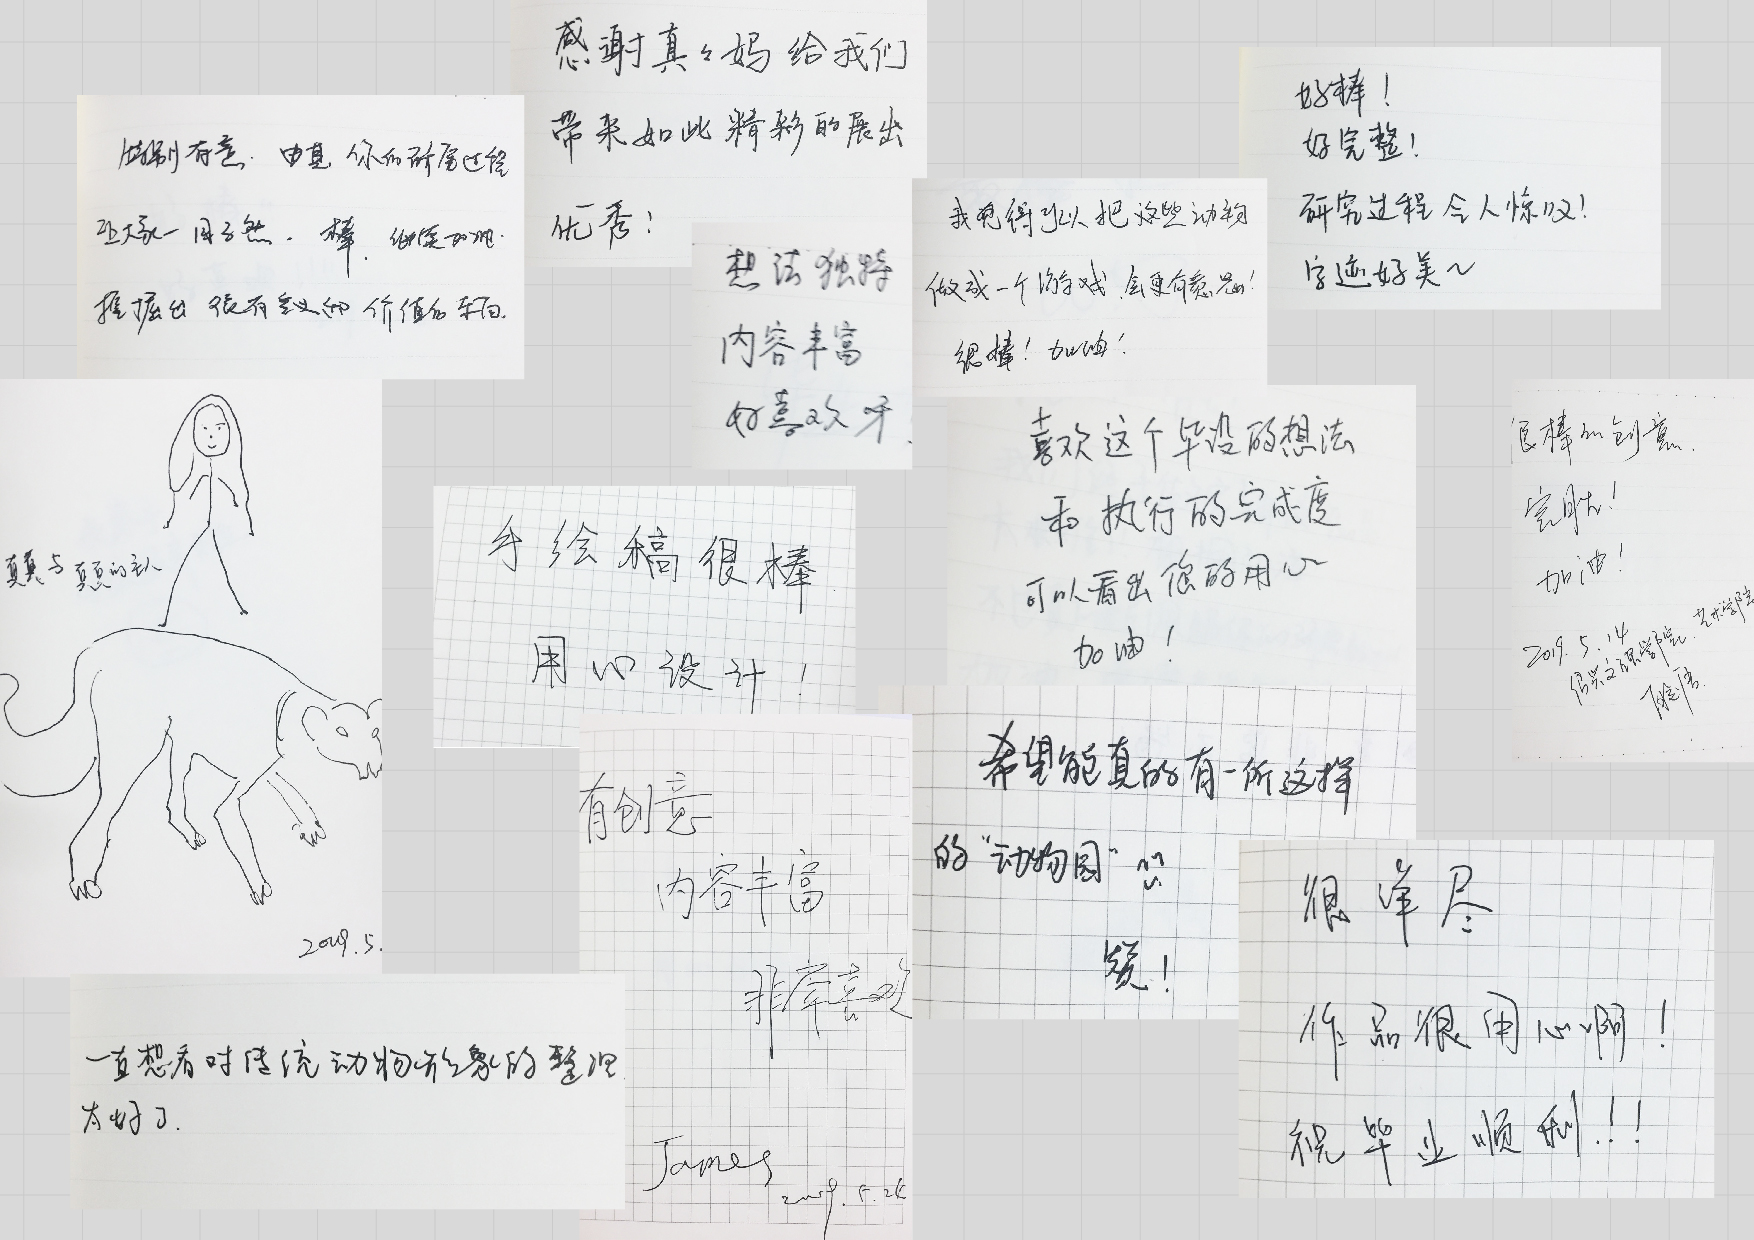 感谢真々妈给我们
带来如此精彩的展出
优秀！
特别有意. 由真 你的研究过程
让大家一目了然. 棒. 继续加油.
挖掘出 很有意义的 价值的东西.
好棒！
好完整！
研究过程令人惊叹！
字迹好美～
想法独特
内容丰富
好喜欢呀
我觉得可以把这些动物
做成一个游戏,会更有意思！
很棒！加油！
喜欢这个毕设的想法
和执行的完成度
可以看出您的用心
加油！
很棒的创意.
完成！
加油！
2019.5.14
真真与真真的主人
2019.5.
手绘稿很棒
用心设计！
有创意
内容丰富
非常喜欢
James
希望能真的有一所这样
的“动物园”
赞！
很详尽
作品很用心啊！
祝毕业顺利！！！
一直想看对传统动物形象的整理
太好了.